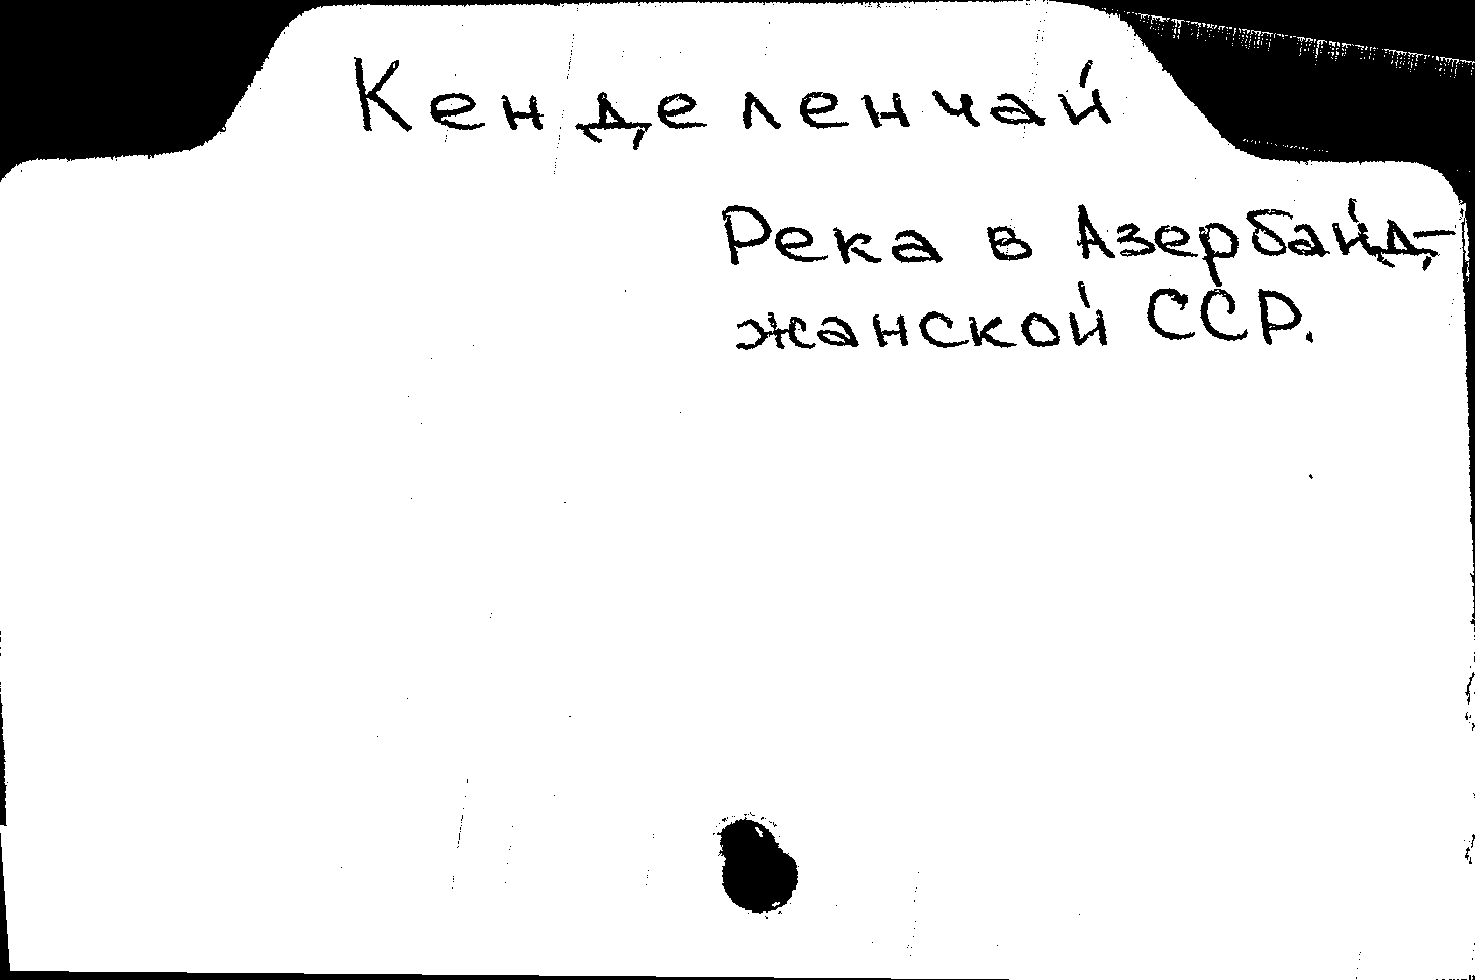 Кенделенчай
Река в Азербайд-
жанской ССР.